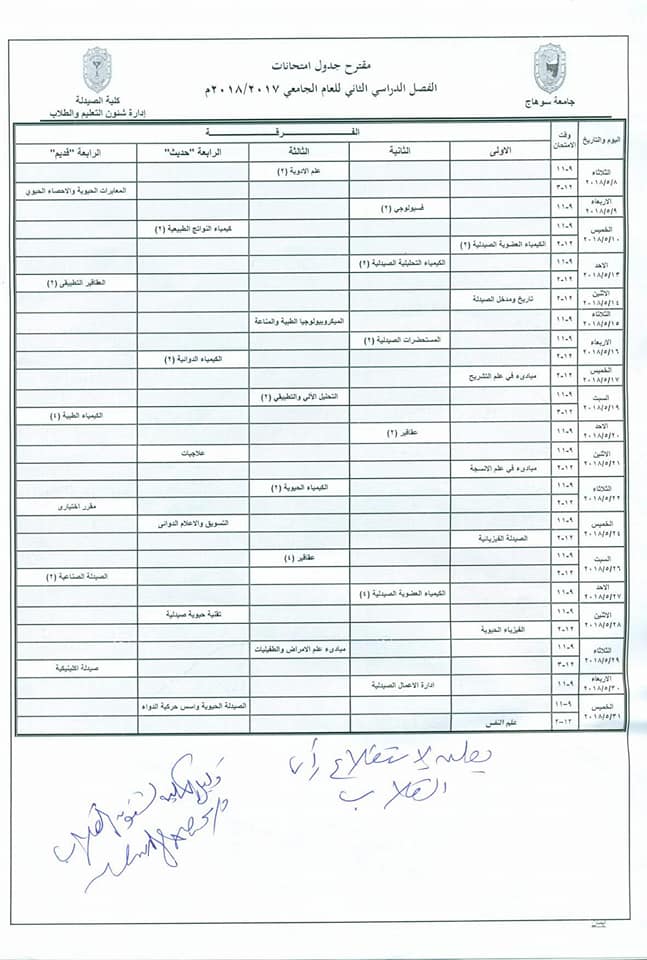 مقترح جدول امتحانات
الفصل الدراسي الثاني للعام الجامعي ٢٠١٨/٢٠١٧م
جامعة سوهاج
كلية الصيدلة
إدارة شئون التعليم والطلاب
اليوم والتاريخ وقت الامتحان الفــرقــة
الاولى الثانية الثالثة الرابعة "حديث" الرابعة "قديم"
الثلاثاء ٢٠١٨/٥/٨ ٩-١١ علم الادوية (٢)
١٢-٣ المعايرات الحيوية والاحصاء الحيوي
الاربعاء ٢٠١٨/٥/٩ ٩-١١ فسيولوجي (٢)
الخميس ٢٠١٨/٥/١٠ ٩-١١ كيمياء النواتج الطبيعية (٢)
١٢-٢ الكيمياء العضوية الصيدلية (٢)
الاحد ٢٠١٨/٥/١٣ ٩-١١ الكيمياء التحليلية الصيدلية (٢)
١٢-٢ العقاقير التطبيقى (٢)
الاثنين ٢٠١٨/٥/١٤ ١٢-٢ تاريخ ومدخل الصيدلة
الثلاثاء ٢٠١٨/٥/١٥ ٩-١١ الميكروبيولوجيا الطبية والمناعة
الاربعاء ٢٠١٨/٥/١٦ ٩-١١ المستحضرات الصيدلية (٢)
١٢-٢ الكيمياء الدوائية (٢)
الخميس ٢٠١٨/٥/١٧ ١٢-٢ مبادىء في علم التشريح
السبت ٢٠١٨/٥/١٩ ٩-١١ التحليل الآلي والتطبيقي (٢)
١٢-٣ الكيمياء الطبية (٤)
الاحد ٢٠١٨/٥/٢٠ ٩-١١ عقاقير (٢)
الاثنين ٢٠١٨/٥/٢١ ٩-١١ علاجيات
١٢-٢ مبادىء في علم الانسجة
الثلاثاء ٢٠١٨/٥/٢٢ ٩-١١ الكيمياء الحيوية (٢)
١٢-٢ مقرر اختيارى
الخميس ٢٠١٨/٥/٢٤ ٩-١١ التسويق والاعلام الدوائى
١٢-٢ الصيدلة الفيزيائية
السبت ٢٠١٨/٥/٢٦ ٩-١١ عقاقير (٤)
١٢-٢ الصيدلة الصناعية (٢)
الاحد ٢٠١٨/٥/٢٧ ٩-١١ الكيمياء العضوية الصيدلية (٤)
الاثنين ٢٠١٨/٥/٢٨ ٩-١١ تقنية حيوية صيدلية
١٢-٢ الفيزياء الحيوية
الثلاثاء ٢٠١٨/٥/٢٩ ٩-١١ مبادىء علم الامراض والطفيليات
١٢-٣ صيدلة اكلينيكية
الاربعاء ٢٠١٨/٥/٣٠ ٩-١١ ادارة الاعمال الصيدلية
الخميس ٢٠١٨/٥/٣١ ٩-١١ الصيدلة الحيوية واسس حركية الدواء
١٢-٢ علم النفس
لاستطلاع رأى
الطلاب